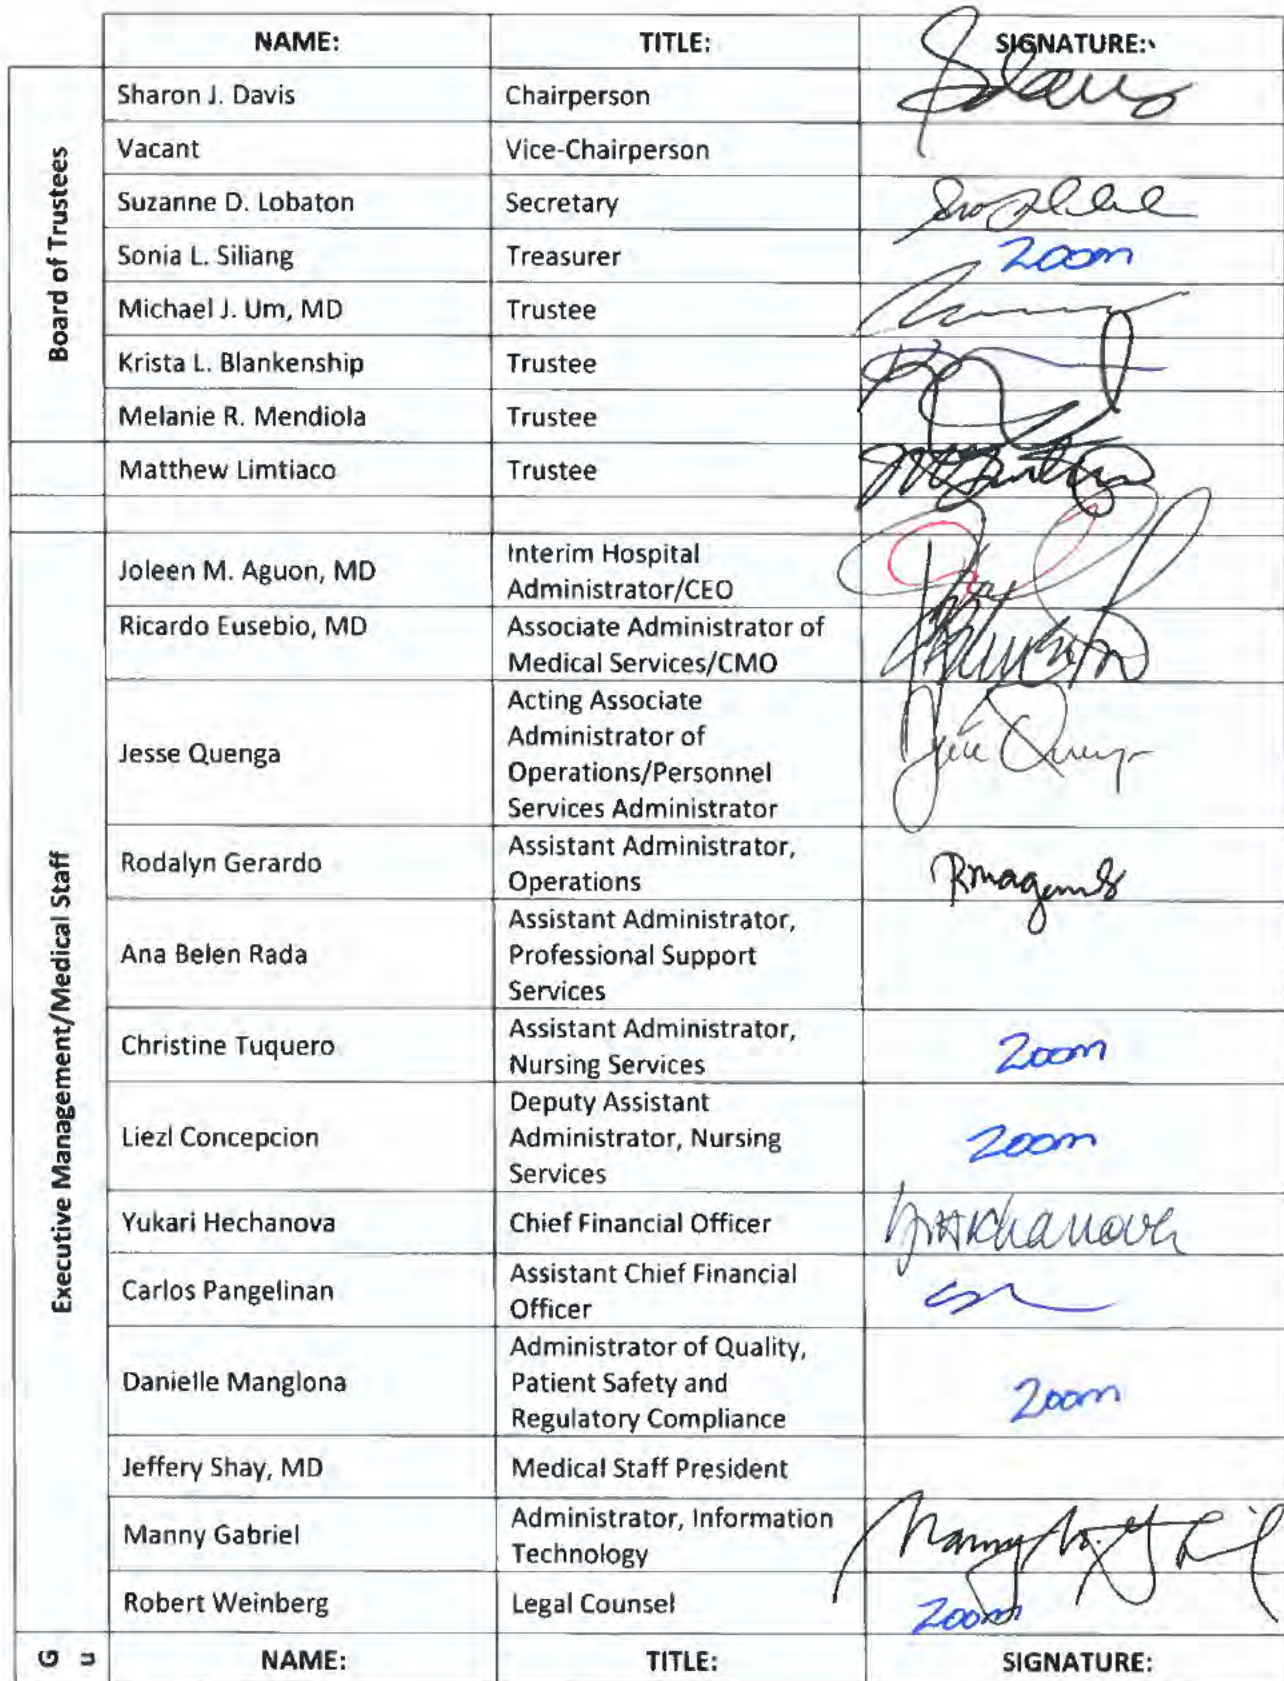 NAME: TITLE: SIGNATURE:
Board of Trustees
Sharon J. Davis Chairperson
Vacant Vice-Chairperson
Suzanne D. Lobaton Secretary
Sonia L. Siliang Treasurer Zoom
Michael J. Um, MD Trustee
Krista L. Blankenship Trustee
Melanie R. Mendiola Trustee
Matthew Limtiaco Trustee
Executive Management/Medical Staff
Joleen M. Aguon, MD Interim Hospital
Administrator/CEO
Ricardo Eusebio, MD Associate Administrator of
Medical Services/CMO
Jesse Quenga Acting Associate
Administrator of
Operations/Personnel
Services Administrator
Rodalyn Gerardo Assistant Administrator,
Operations
Ana Belen Rada Assistant Administrator,
Professional Support
Services
Christine Tuquero Assistant Administrator,
Nursing Services Zoom
Liezl Concepcion Deputy Assistant
Administrator, Nursing
Services Zoom
Yukari Hechanova Chief Financial Officer
Carlos Pangelinan Assistant Chief Financial
Officer
Danielle Manglona Administrator of Quality,
Patient Safety and
Regulatory Compliance Zoom
Jeffery Shay, MD Medical Staff President
Manny Gabriel Administrator, Information
Technology
Robert Weinberg Legal Counsel Zoom
G u NAME: TITLE: SIGNATURE: